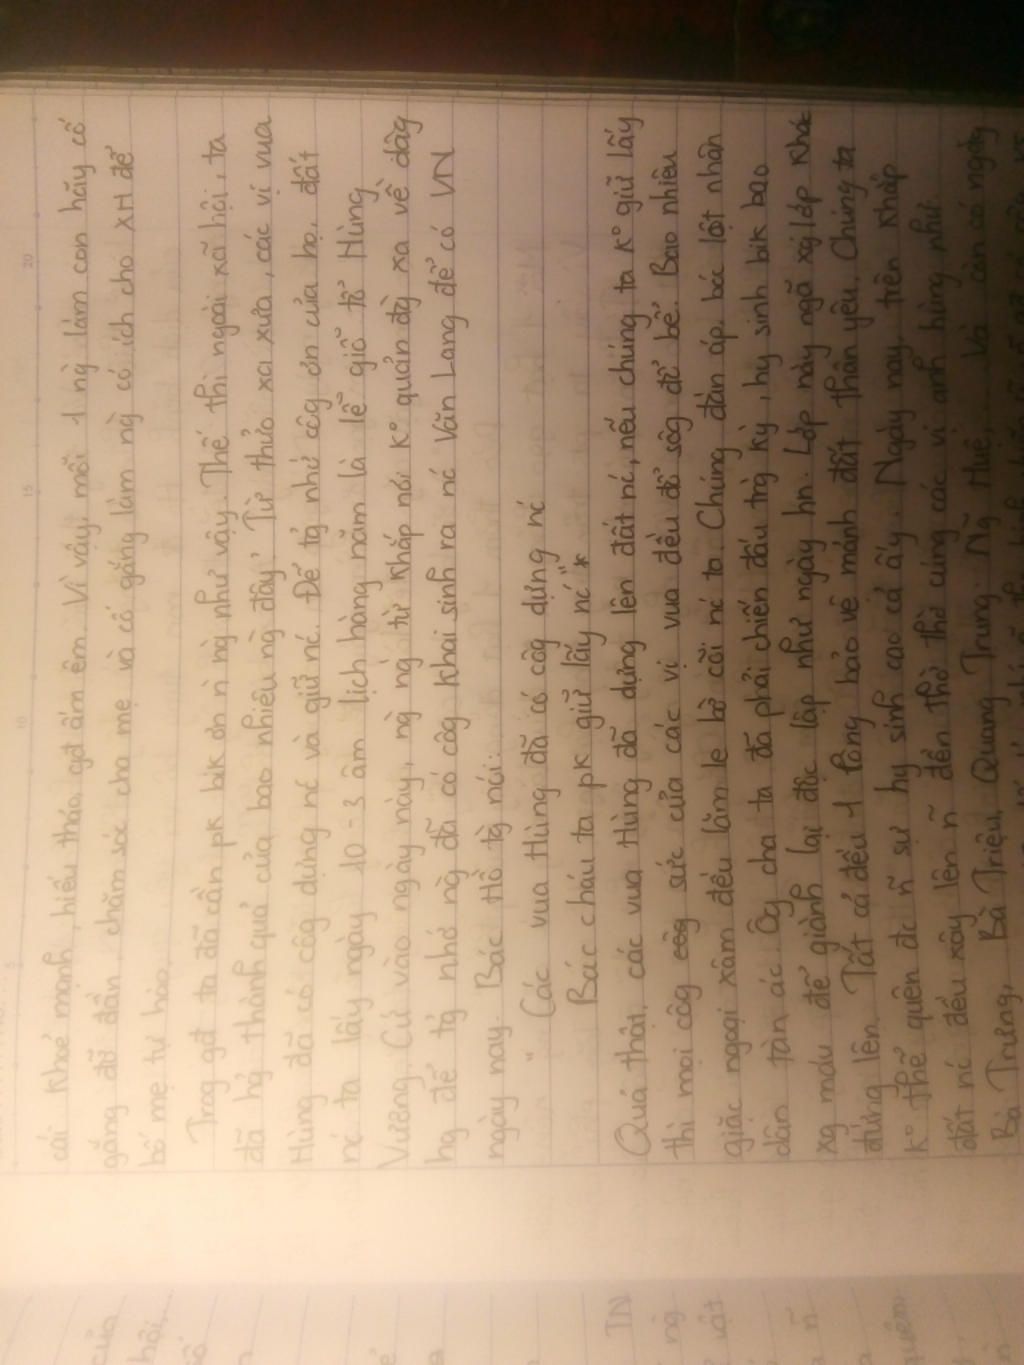 cái khoẻ mạnh, hiếu thảo, gđ ấm êm. Vì vậy, mỗi 1 ng làm con hãy cố
gắng đỡ đần, chăm sóc cha mẹ và cố gắng làm ng có ích cho XH để
bố mẹ tự hào.
Trog gđ ta đã cần pk bik ơn ñ ng như vậy. Thế thì ngoài xã hội, ta
đã hg thành quả của bao nhiêu ng đây? Từ thuở xa xưa, các vị vua
Hùng đã có côg dựng nc và giữ nc. Để tg nhớ côg ơn của họ, đất
nc ta lấy ngày 10 - 3 âm lịch hàng năm là lễ giỗ tổ Hùng
Vương. Cứ vào ngày này, ng ng từ khắp nơi k° quản đg xa về dâg
hg để tg nhớ ng đã có côg khai sinh ra nc Văn Lang để có VN
ngày nay. Bác Hồ tg nói:
" Các vua Hùng đã có côg dựng nc
Bác cháu ta pk giữ lấy nc" *
Quả thật, các vua Hùng đã dựng lên đất nc, nếu chúng ta k° giữ lấy
thì mọi côg sức của các vị vua đều đổ sôg đổ bể. Bao nhiêu
giặc ngoại xâm đều lăm le bờ cõi nc ta. Chúng đàn áp, bóc lột nhân
dân tàn ác. Ôg cha ta đã phải chiến đấu trg kỳ, hy sinh bik bao
xg máu để giành lại độc lập như ngày hn. Lớp này ngã xg lớp khác
đứng lên. Tất cả đều 1 lòng bảo vệ mảnh đất thân yêu. Chúng ta
k° thể quên đc ñ sự hy sinh cao cả ấy. Ngày nay, trên khắp
đất nc đều xây lên ñ đền thờ thờ cúng các vị anh hùng như:
Bà Trưng, Bà Triệu, Quang Trung Ng̃ Huệ,... Và còn có ngày